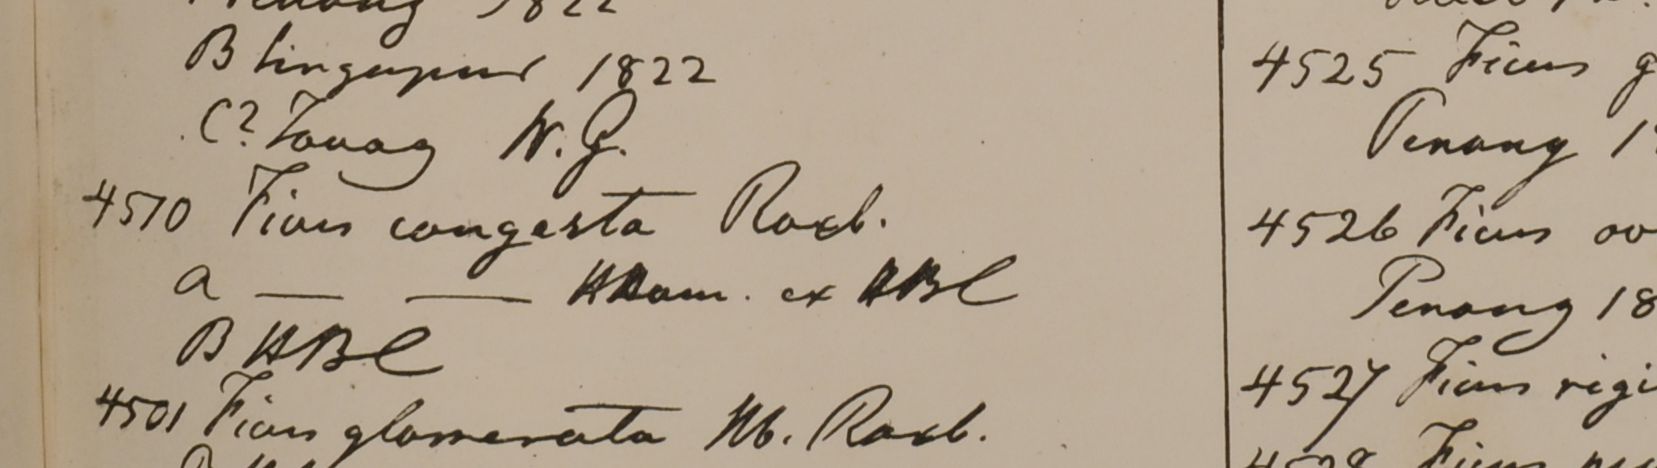 Penang 1822
B Singapur 1822
C? Tavoy W. G.
4510 Ficus congesta Roxb.
a — — HHam. ex HBC
B HBC
4501 Ficus glomerata Hb. Roxb.
4525 Ficus g
Penang 1
4526 Ficus ov
Penang 18
4527 Ficus rigi
4528 Ficus